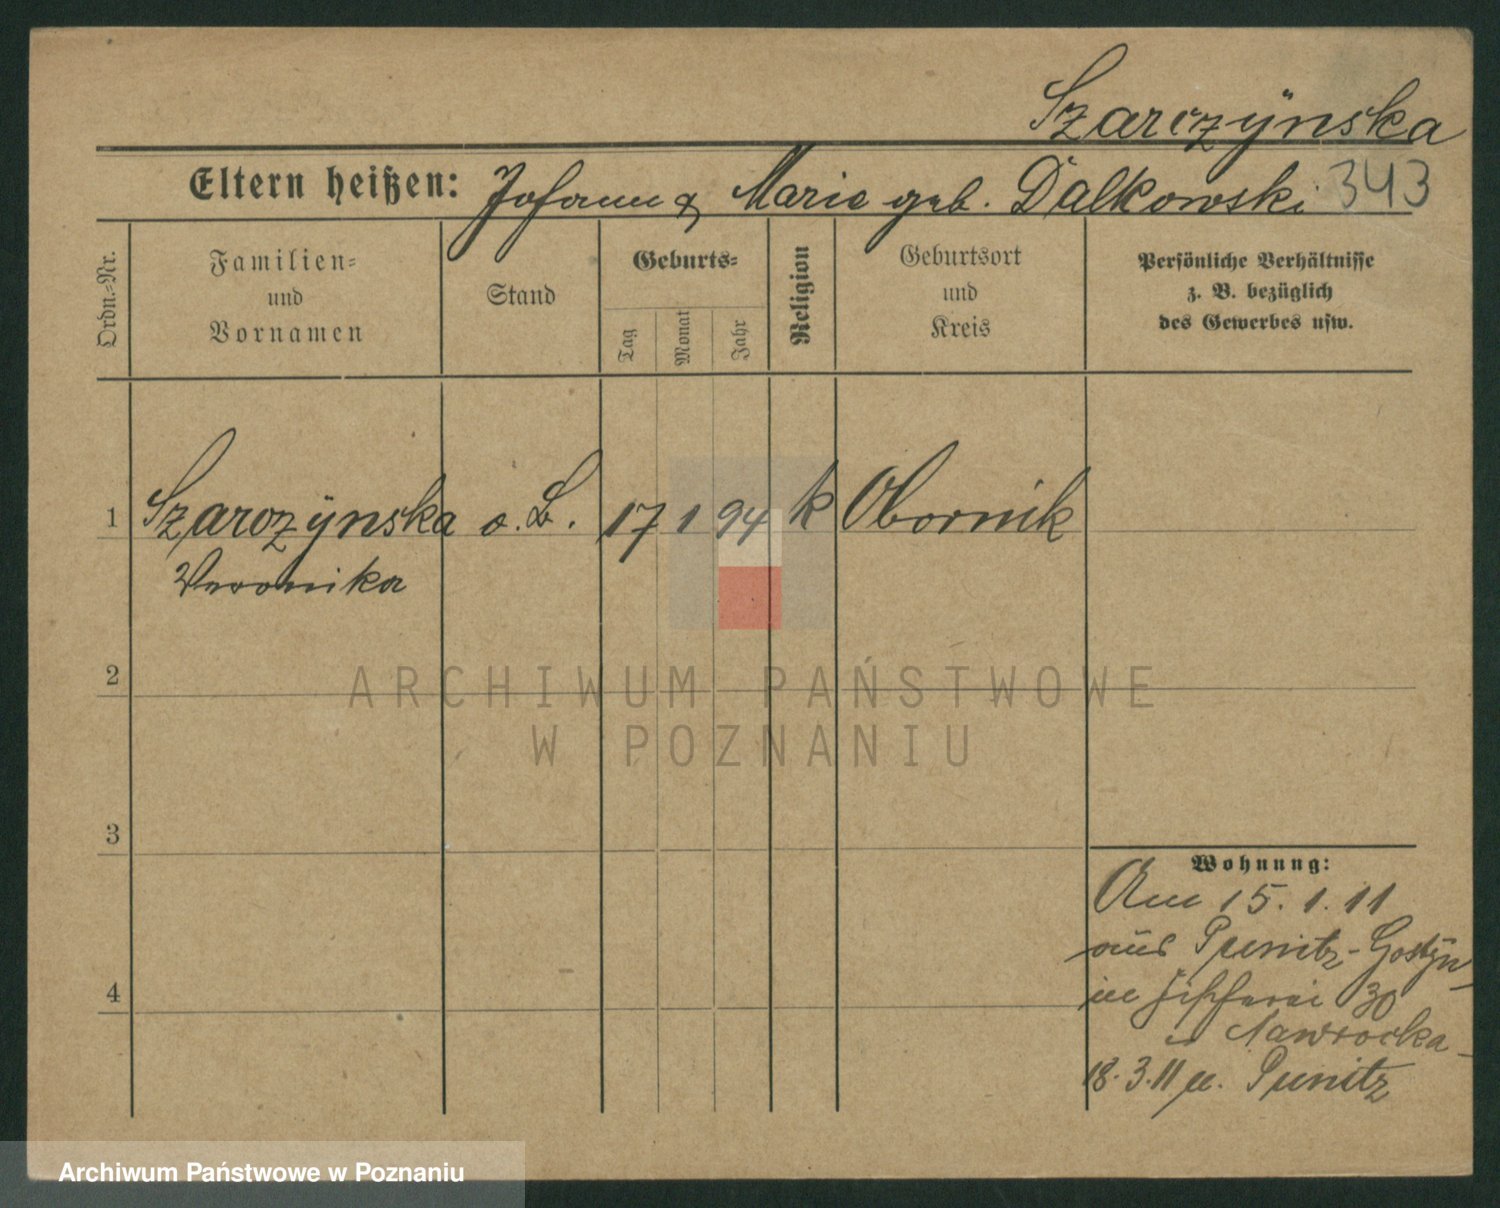 Szarczÿnska
Eltern heißen: Johann & Marie geb. Dalkowski 343
Ordn.-Nr.
Familien-
und
Vornamen
Stand
Geburts-
Tag
Monat
Jahr
Religion
Geburtsort
und
Kreis
Persönliche Verhältnisse
z. B. bezüglich
des Gewerbes usw.
1 Szarczÿnska o. B. 17 1 94 k Obornik
Veronika
2
3
4
Wohnung:
Am 15.1.11
aus Punitz-Gostÿn
in Fischerei 30
Nawrocka
18.3.11 n. Punitz
ARCHIWUM PAŃSTWOWE
W POZNANIU
Archiwum Państwowe w Poznaniu